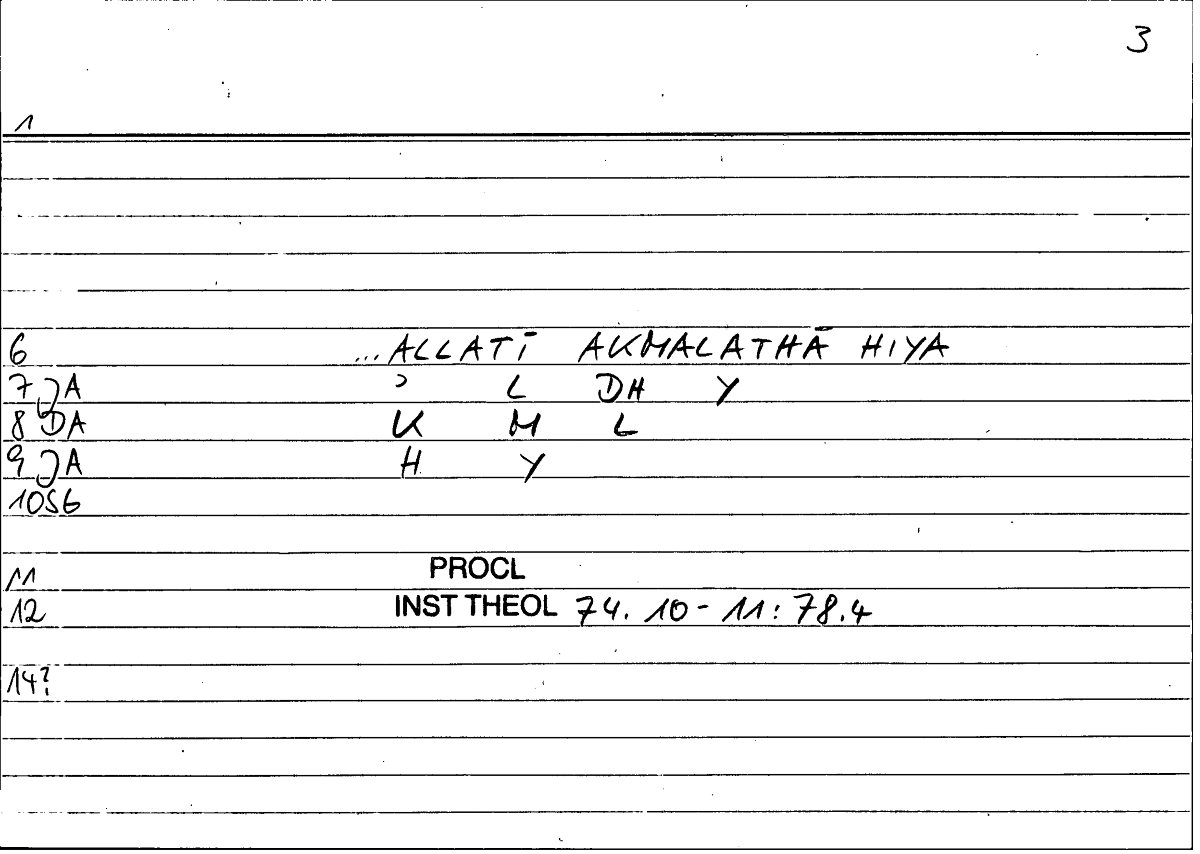 3
1
6 ...ALLATĪ AKMALATHĀ HIYA
7 JA ʾ L DH Y
8 DA K M L
9 JA H Y
10SG
11 PROCL
12 INST THEOL 74. 10-11: 78.4
14?